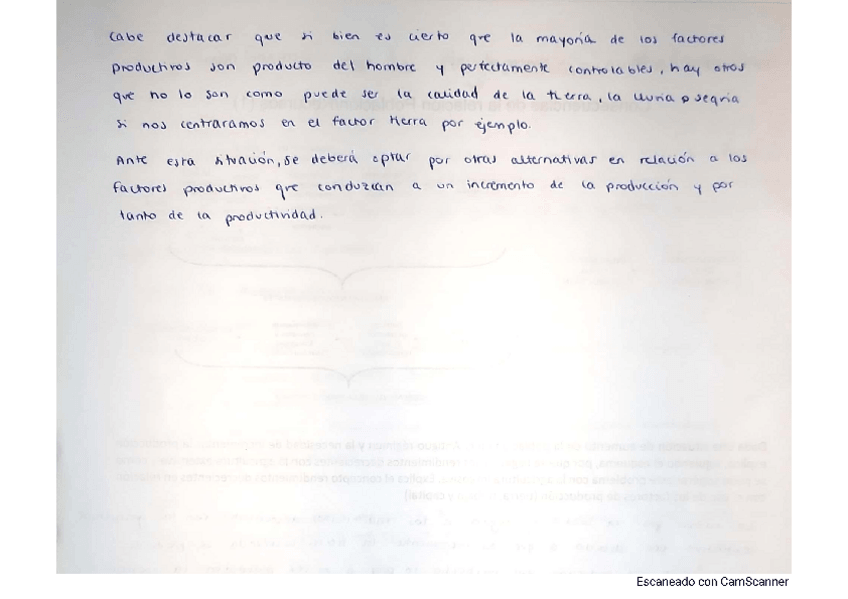 Cabe destacar que si bien es cierto que la mayoría de los factores
productivos son producto del hombre y perfectamente controlables, hay otros
que no lo son como puede ser la calidad de la tierra, la lluvia o sequía
si nos centráramos en el factor tierra por ejemplo.
Ante esta situación, se deberá optar por otras alternativas en relación a los
factores productivos que conduzcan a un incremento de la producción y por
tanto de la productividad.
Escaneado con CamScanner